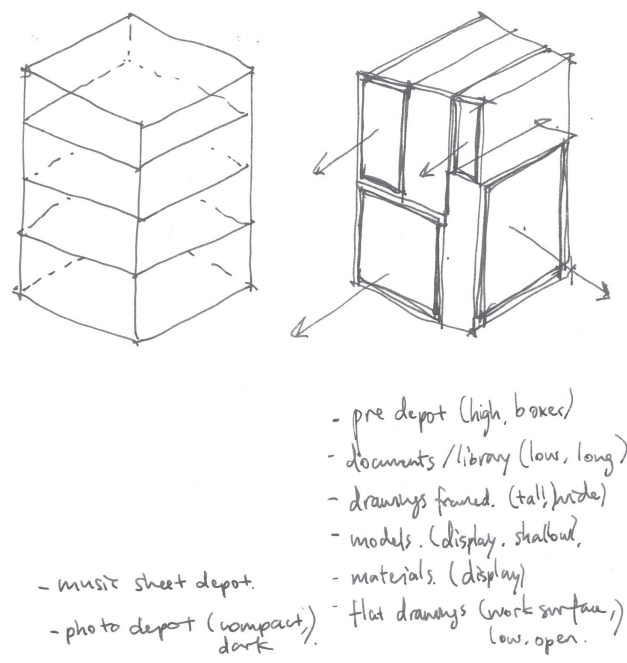 - pre depot (high, boxes)
- documents/library (low, long)
- drawings framed. (tall, wide)
- models. (display, shallow,
- materials. (display)
- flat drawings (work surface,)
low, open.
- music sheet depot.
- photo depot (compact,).
dark